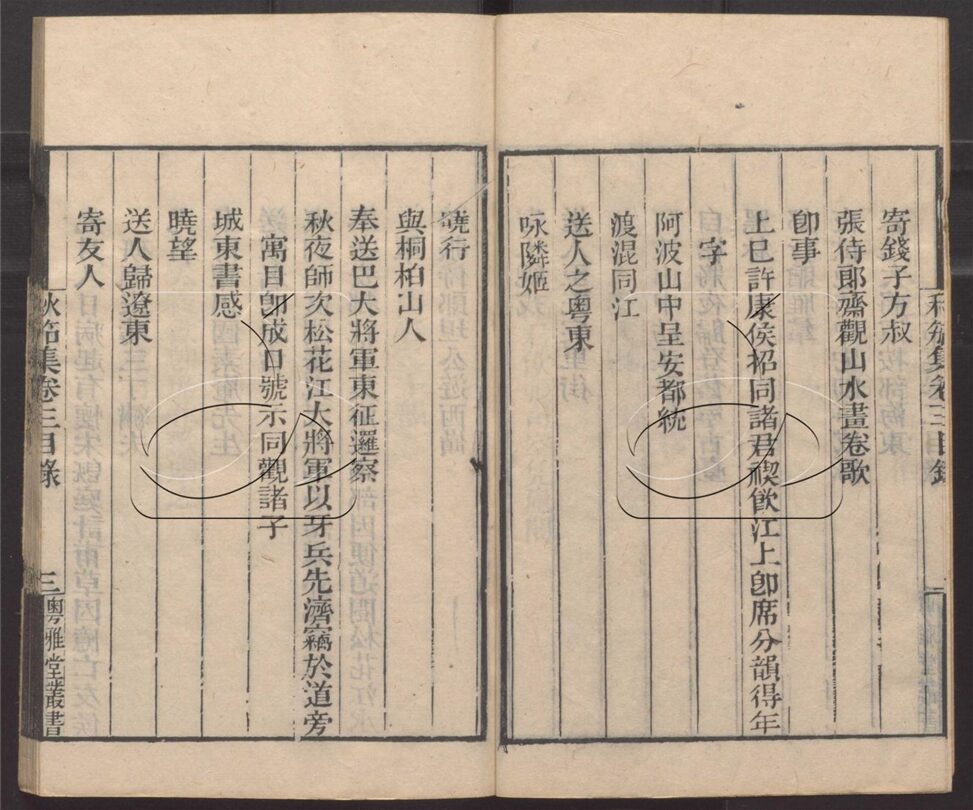 寄錢子方叔
張侍郞齋觀山水畫卷歌
卽事
上巳許康侯招同諸君禊飮江上卽席分韻得年
字
阿波山中呈安都統
渡混同江
送人之粵東
咏隣姬
曉行
與桐柏山人
奉送巴大將軍東征邏察
秋夜師次松花江大將軍以牙兵先濟竊於道旁
寓目卽成口號示同觀諸子
城東書感
曉望
送人歸遼東
寄友人
秋笳集卷三目錄
三
粵雅堂叢書